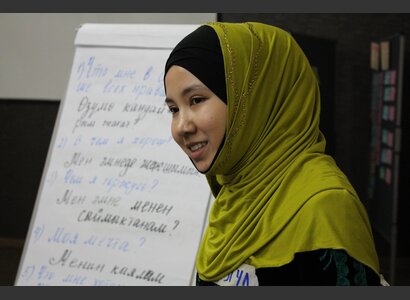 1) Что мне в с
ше всех нрави
Өзүмө кандай
2) В чем я хорош
Мен эмнеде
3) Чем я горжусь?
Мен эмне менен
сыймыктанам?
4) Моя мечта?
Менин кыялым
5) Что мне